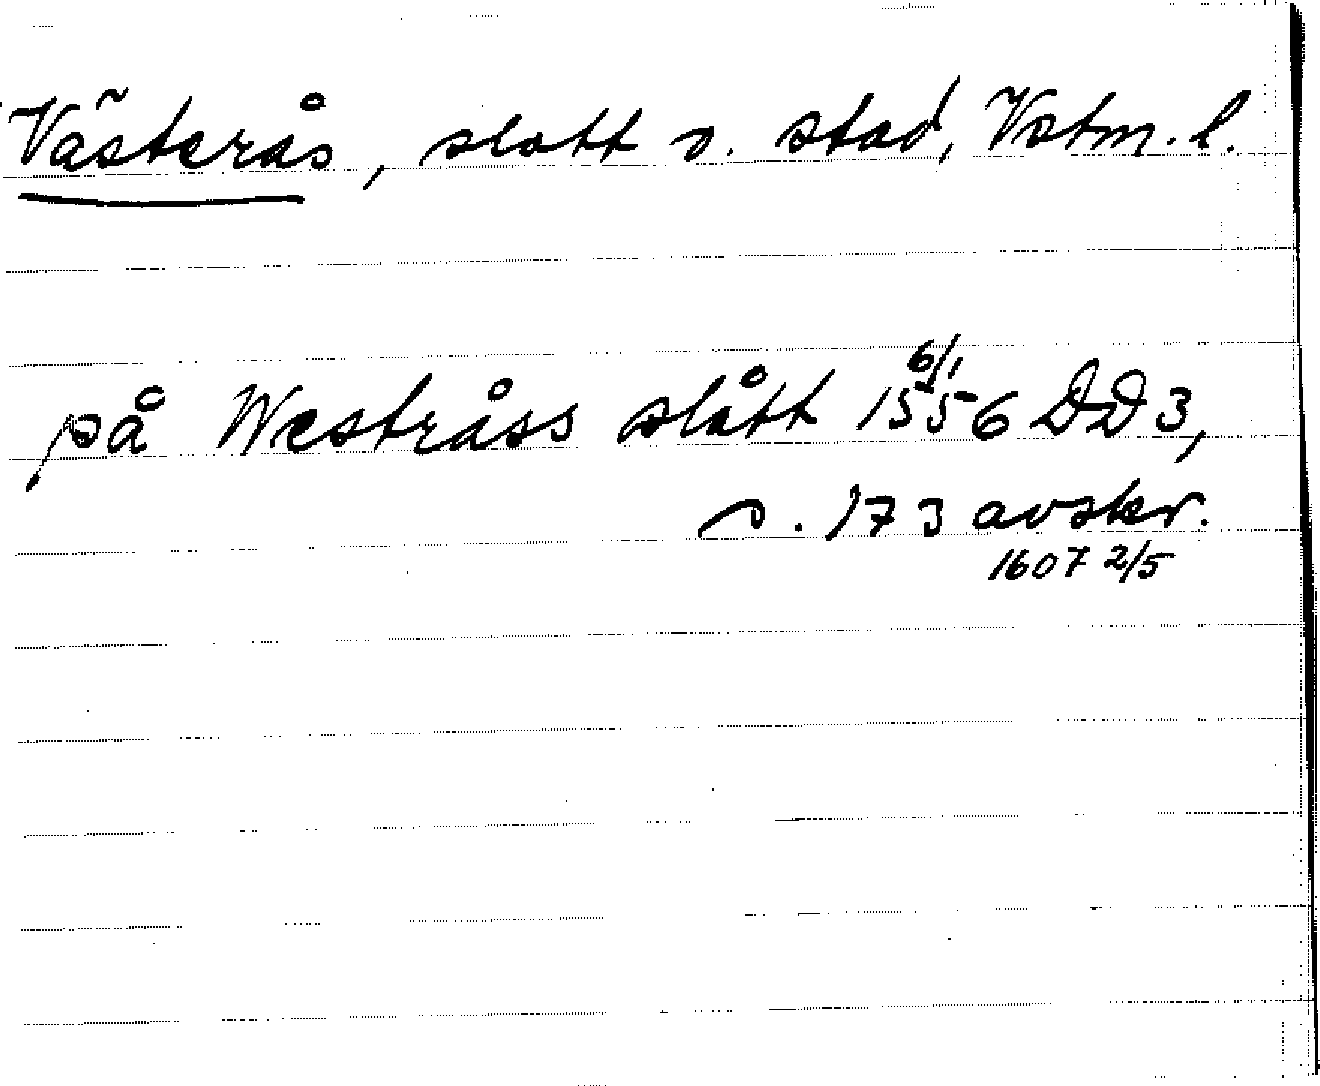 Västerås, slott o. stad, Vstm. l.
på Westråss slått 1556 6/1 DD 3,
s. 173 avskr.
1607 2/5